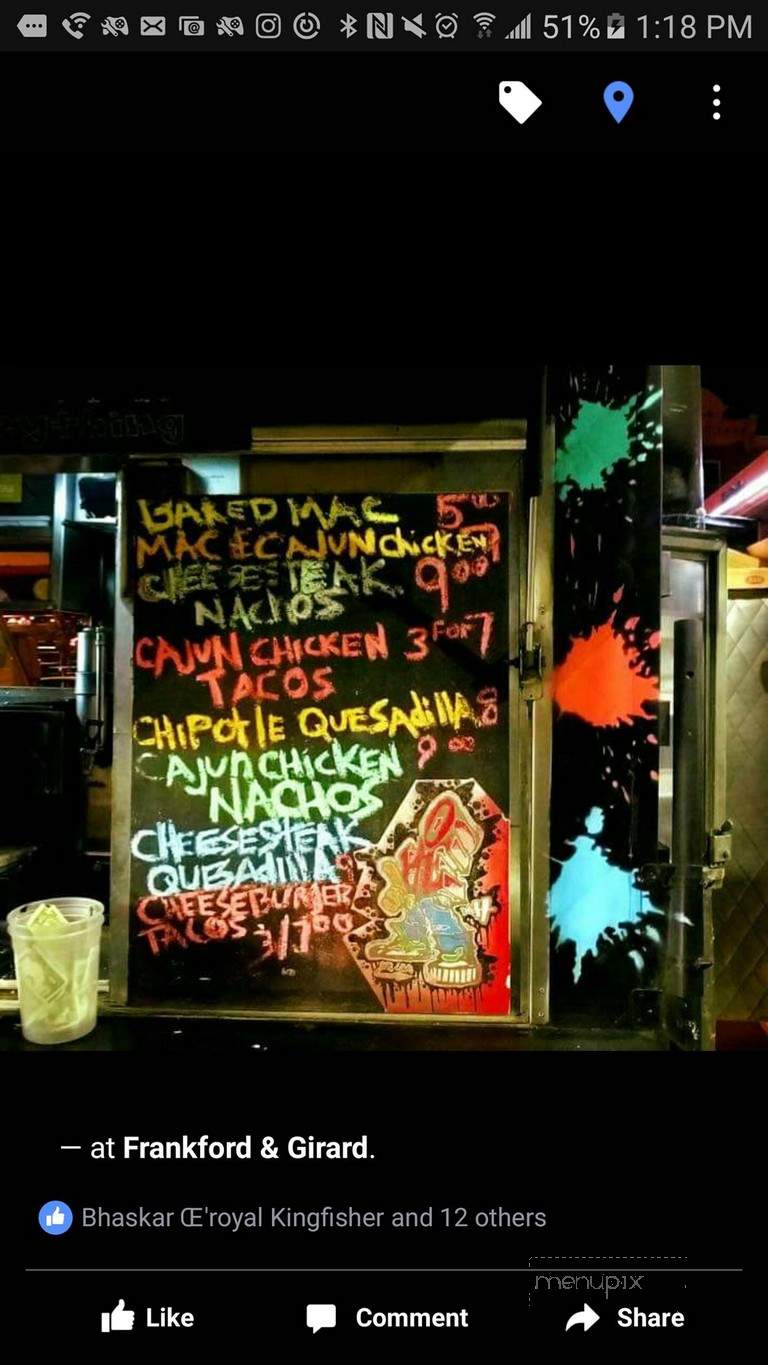 51% 1:18 PM
BAKED MAC 5
MAC & CAJUN chickEN 7
CHEESESTEAK 9.00
NACHOS
CAJUN CHICKEN 3 FOR 7
TACOS
CHIPOtlE QUESAdillA 8
CAJUN CHICKEN 9.00
NACHOS
CHEESESTEAK
QUESAdillA 9
CHEESEBURGER
TACOS 3/7.00
— at Frankford & Girard.
Bhaskar Œ'royal Kingfisher and 12 others
menupix
Like Comment Share